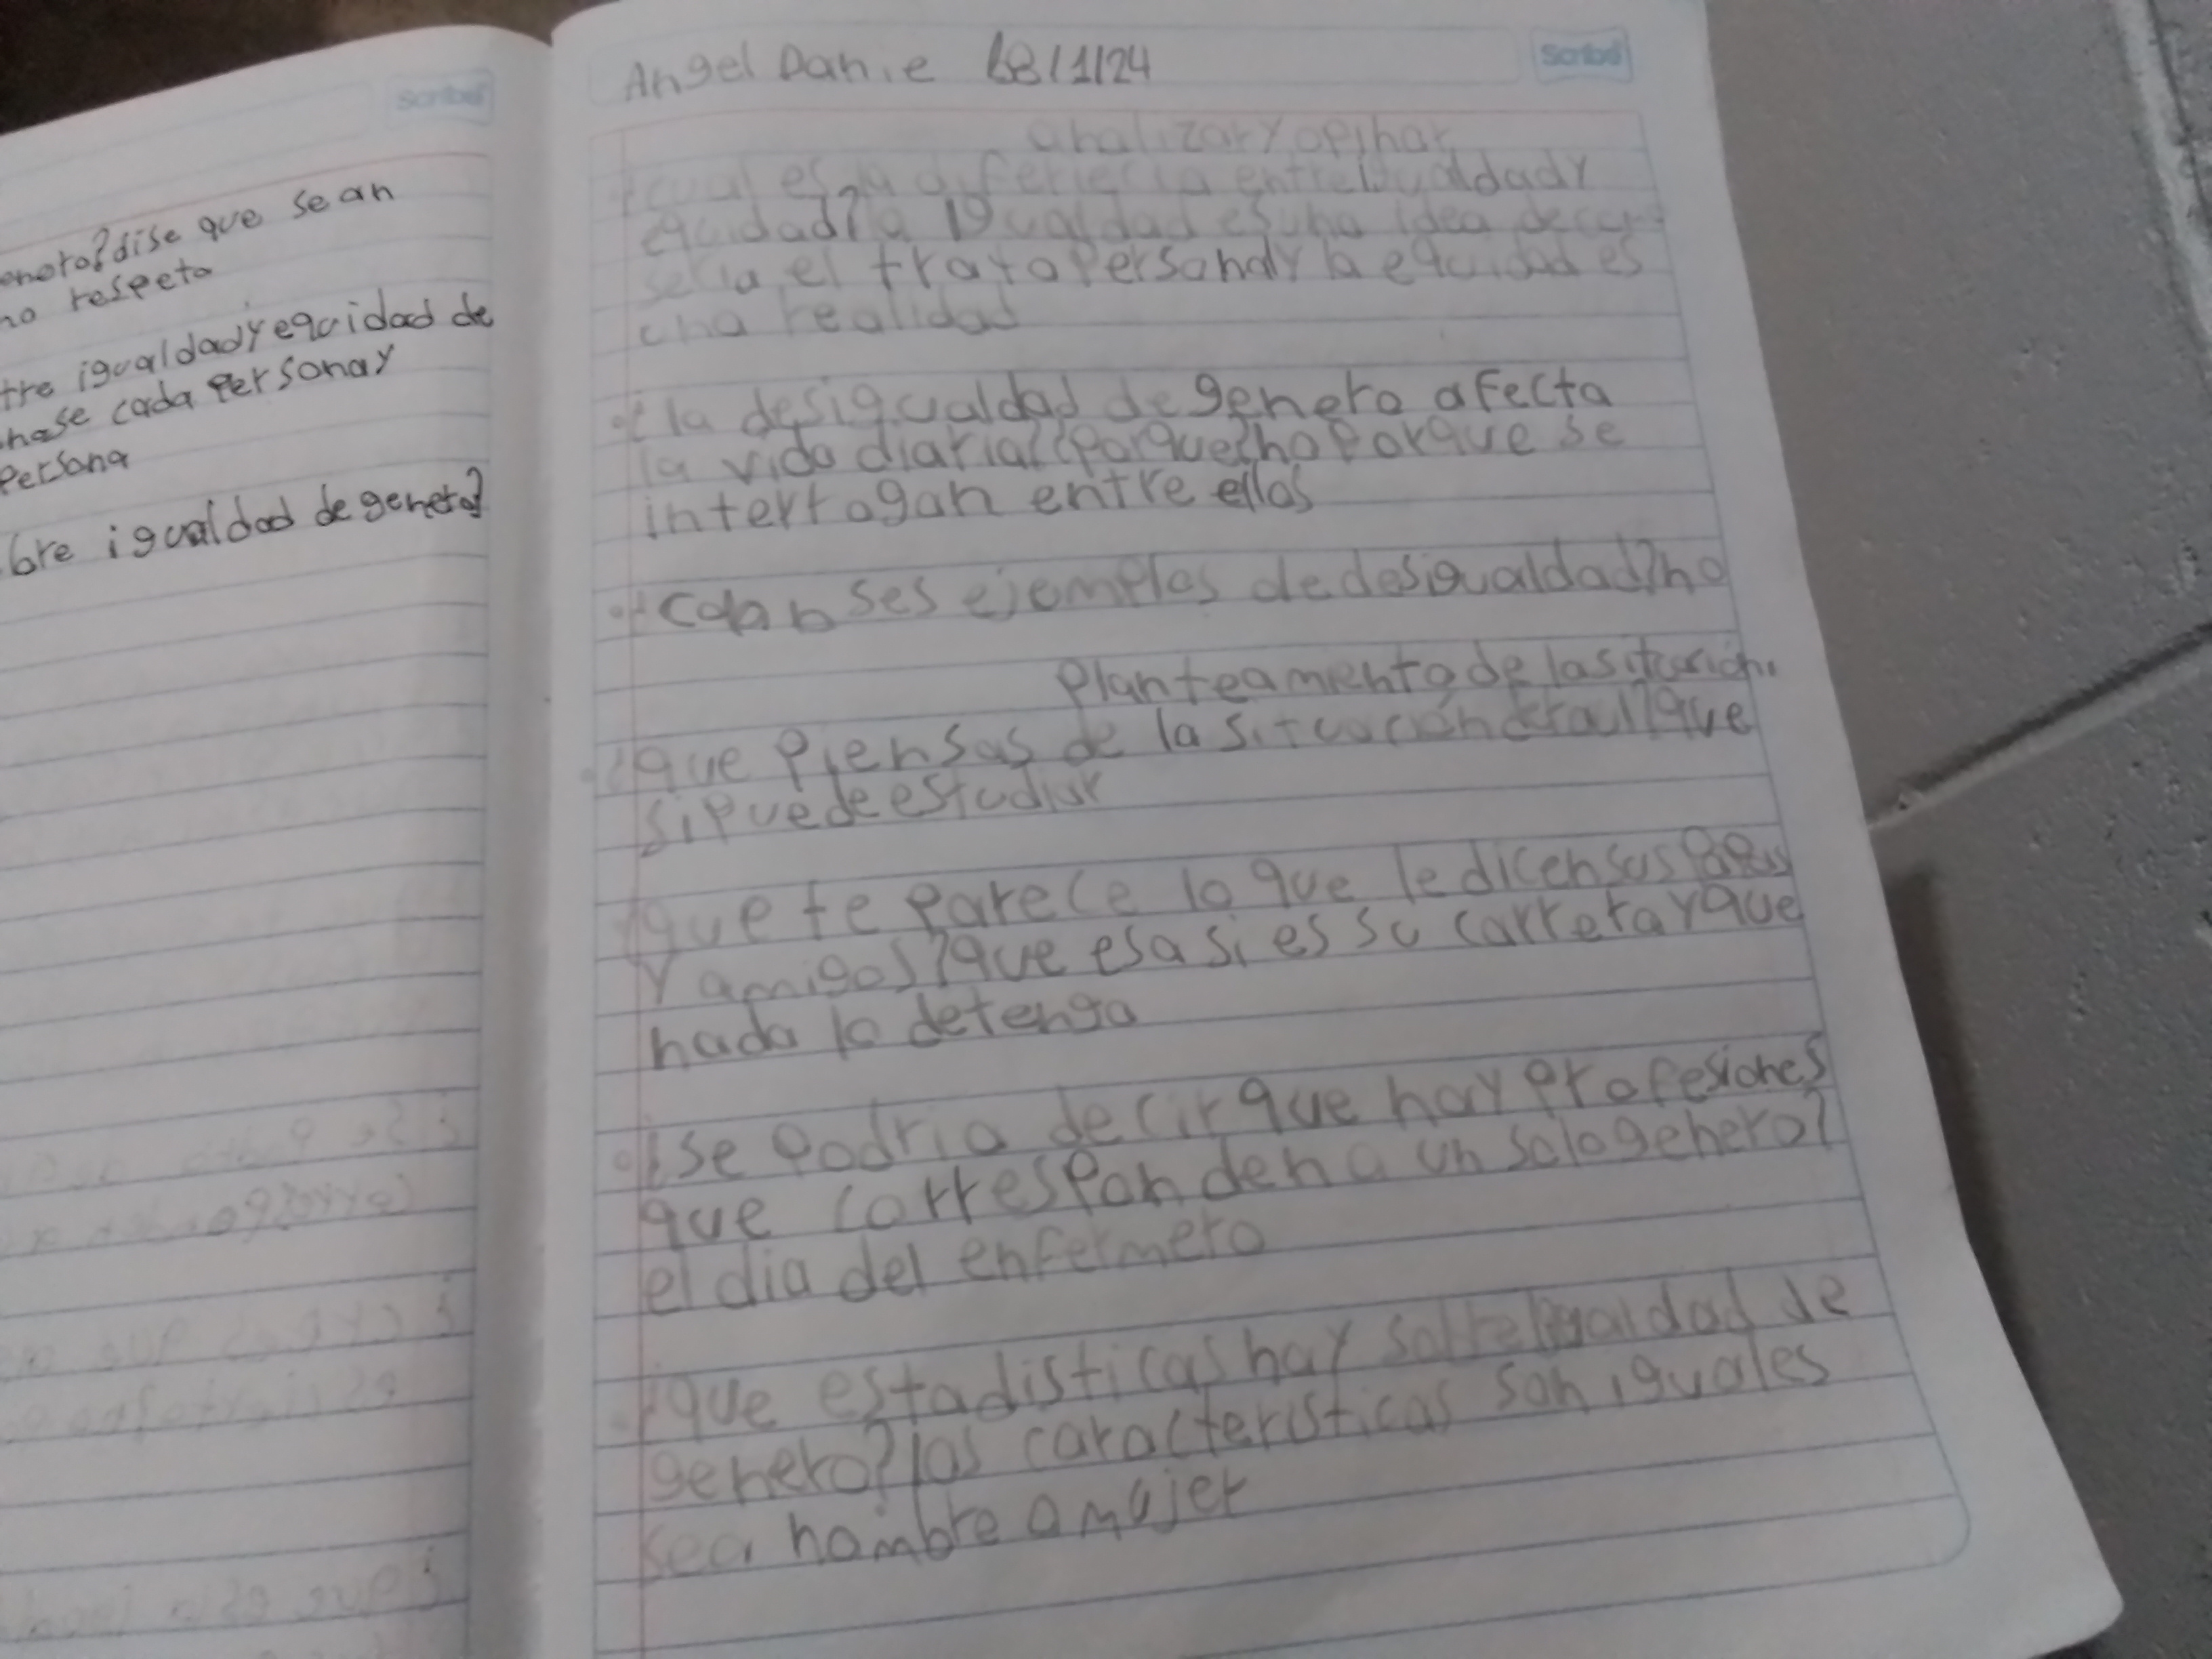 Scribe
enero? dise que sean
no respeto
tre igualdad y equidad de
hase cada Persona y
Persona
bre igualdad de genero?
Angel Danie 18/1/24
Scribe
analizar y opinar
¿cual es la diferiecia entre igualdad y
equidad? la igualdad es una idea de
seria el trato Personal y la equidad es
una realidad
¿la desigualdad de genero afecta
la vida diaria? ¿porque? no Porque se
interrogan entre ellos
ses ejemplos de desigualdad? no
Planteamento de la situacion.
¿que Piensas de la situación de raul? que
si puede estudiar
¿que te Parece lo que le dicen sus Papas
y amigos? que esa si es su carrera y que
nada lo detenga
¿se Podria decir que hay Profesiones
que corresponden a un solo genero?
el dia del enfermero
¿que estadisticas hay sobre igualdad de
genero? las caracteristicas son iguales
sea hombre o mujer